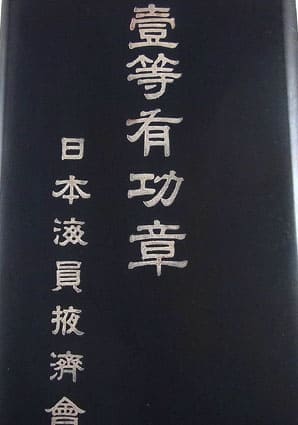 壹等有功章
日本海員掖濟會